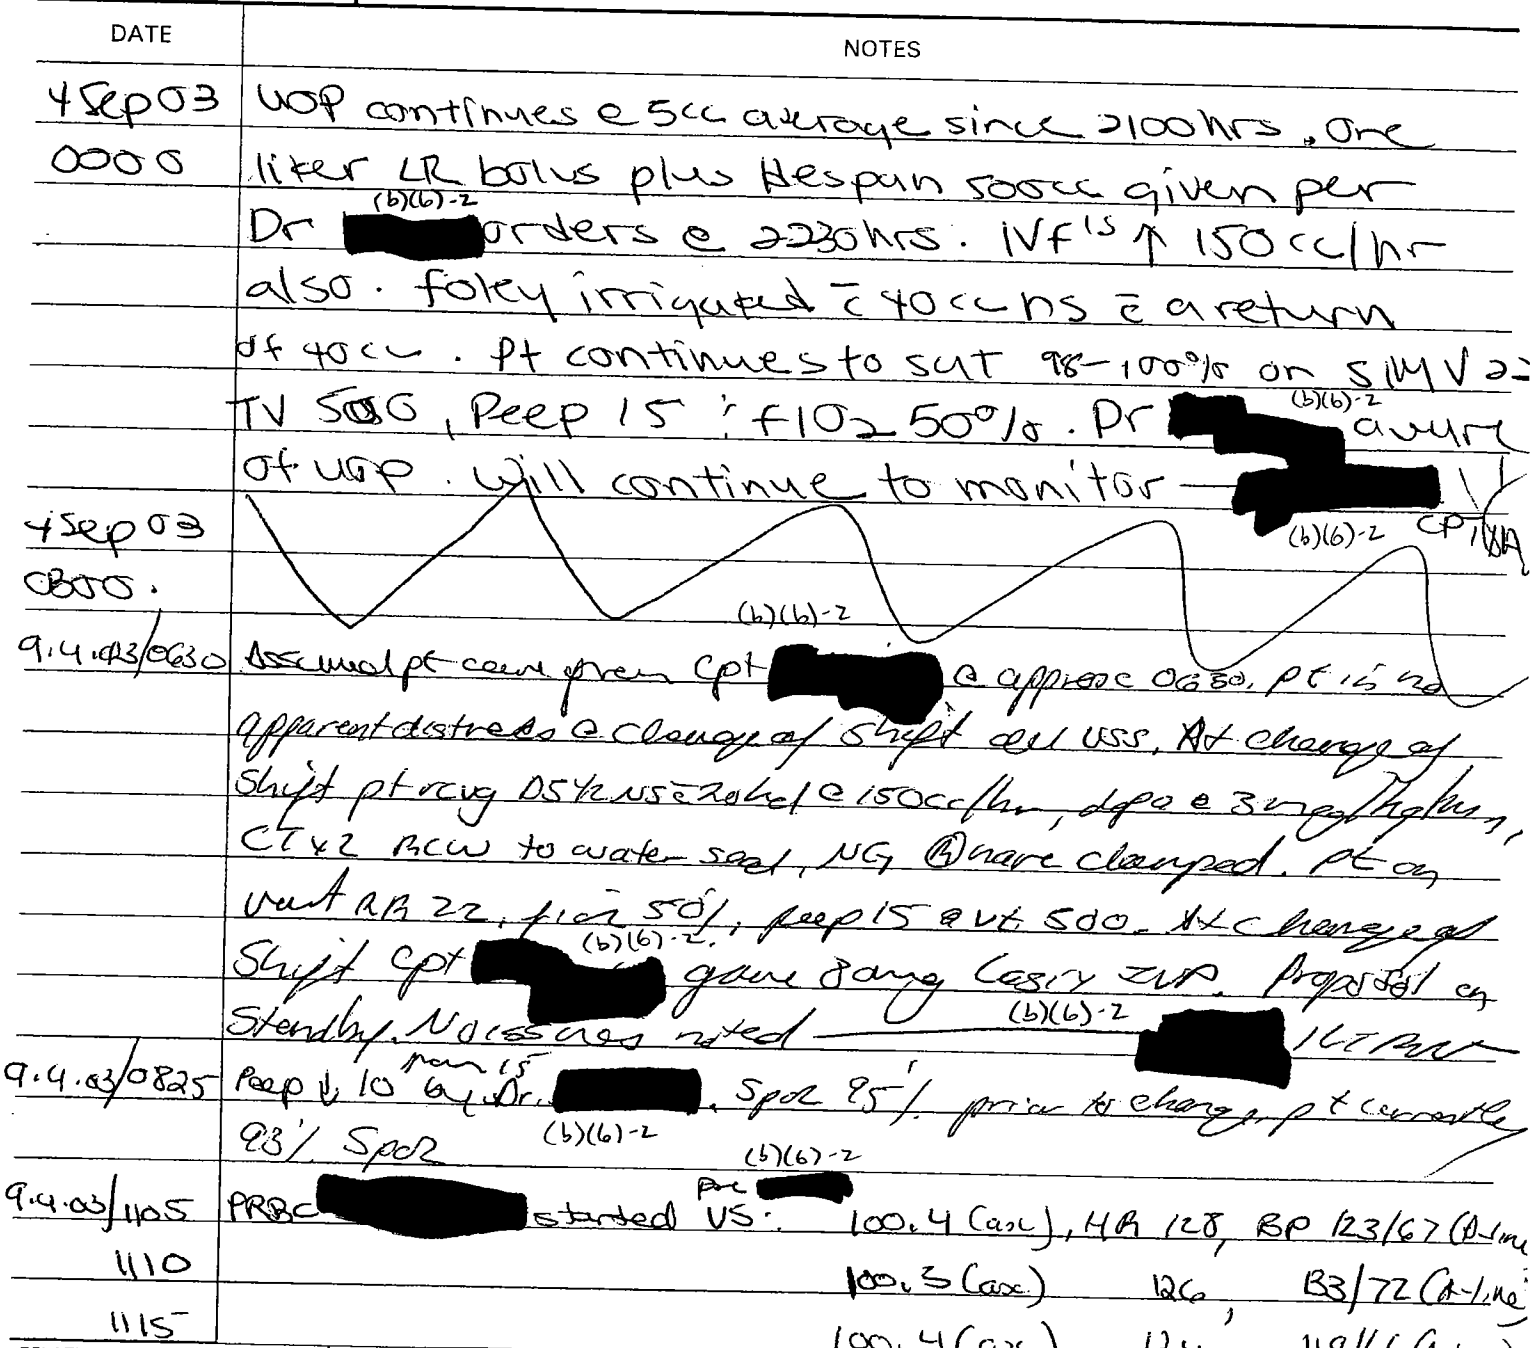 DATE NOTES
4Sep03 UOP continues @ 5cc average since 2100hrs. One
0000 liter LR bolus plus Hespan 500cc given per
(b)(6)-2
Dr orders @ 2230hrs. IVF's ↑ 150cc/hr
also. foley irrigated c̄ 40cc ns c̄ a return
of 40cc. Pt continues to sat 98-100% on SIMV 22
(b)(6)-2
TV 500, Peep 15 FIO2 50%. Dr aware
of UOP. Will continue to monitor
4Sep03 (b)(6)-2 CPT,
(b)(6)-2
9.4.03/0630 Assumed pt care from Cpt @ approx 0630. Pt in no
apparent distress @ change of shift VSS. At change of
Shift pt rcvg D5 1/2 NS c̄ 20kcl @ 150cc/hr, dopa @ 3mcg/kg/min,
CTx2 to water seal, NG Ⓡ nare clamped. Pt on
vent RR 22, fio2 50%, peep 15 vt 500. At change of
(b)(6)-2
Shift Cpt gave Lasix IVP. Propofol on
(b)(6)-2
Standby. No issues noted 1LT
from 15
9.4.03/0825 Peep ↓ 10 by Dr. . SpO2 95% prior to change, pt currently
93% SpO2 (b)(6)-2
(b)(6)-2
9.4.03/1105 PRBC started VS: 100.4 (ax), HR 128, BP 123/67 (A-line
1110 100.3 (ax) 126, 133/72 (A-line)
1115 100.4 (ax)